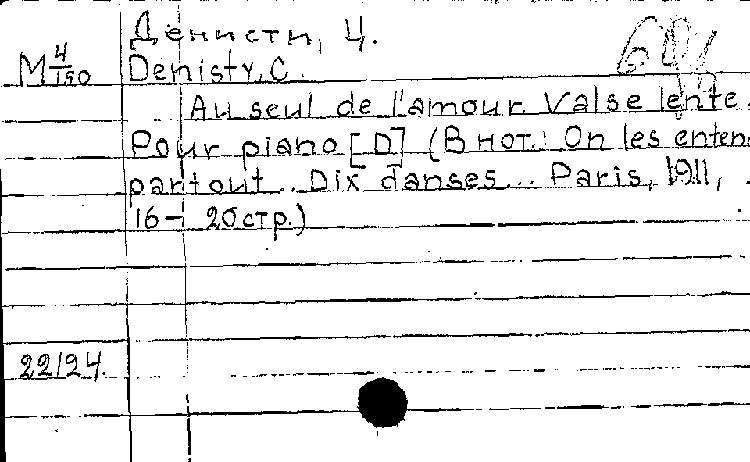 Денисти, Ц.
М 4/150 Denisty, C.
Au seul de l'amour. Valse lente.
Pour piano [D] (В нот.: On les enten
partout.. Dix danses... Paris, 1911,
16-20 стр.)
22124.